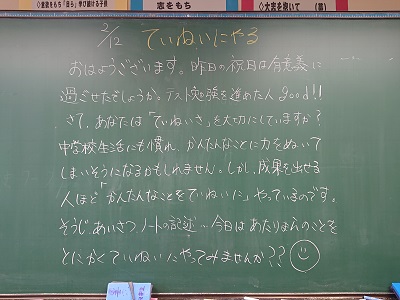 ◇意欲をもち「自ら」学び続ける子供
志をもち
◇大志を抱いて
2/12 ていねいにやる
おはようございます。昨日の祝日は有意義に
過ごせたでしょうか。テスト勉強を進めた人good!!
さて、あなたは「ていねいさ」を大切にしていますか?
中学校生活にも慣れ、かんたんなことに力をぬいて
しまいそうになるかもしれません。しかし、成果を出せる
人ほど「かんたんなことをていねいに」やっているのです。
そうじ、あいさつ、ノートの記述〜今日はあたりまえのことを
とにかくていねいにやってみませんか??